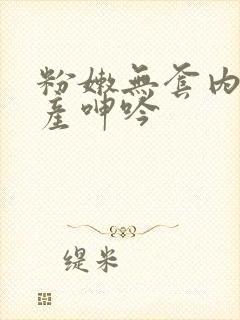 粉嫩無套内
産呻吟
缇米